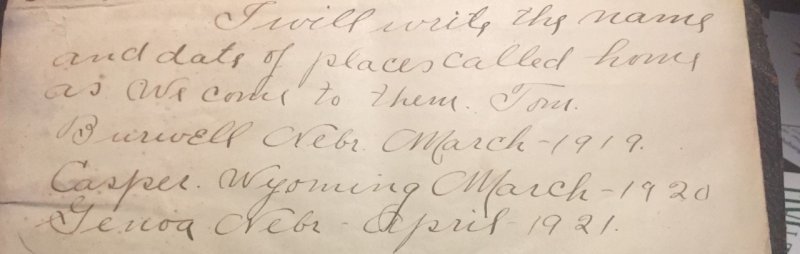 I will write the name
and date of places called home
as We come to them. Tom.
Burwell Nebr. March-1919.
Casper. Wyoming March-1920
Genoa Nebr - April-1921.